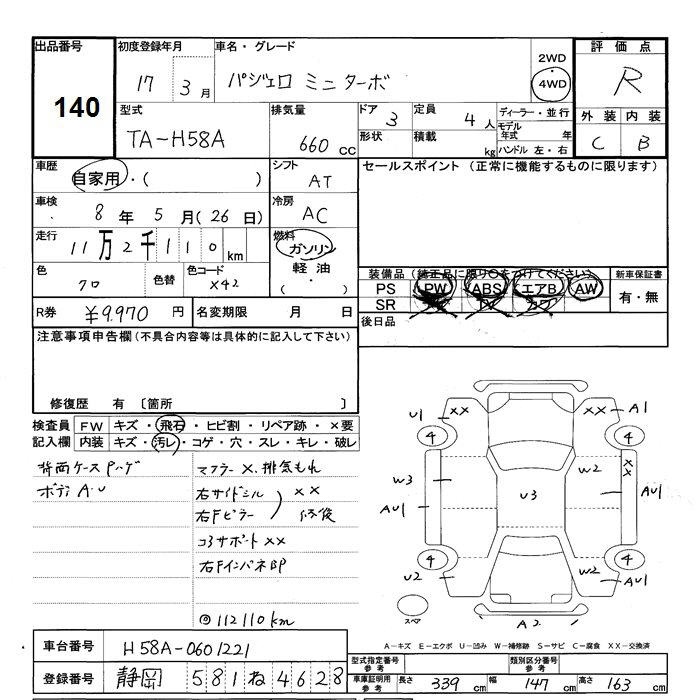 出品番号
140
初度登録年月
17 3月
車名・グレード
パジェロ ミニ ターボ
2WD
4WD
評価点
R
外装 内装
C B
型式
TA-H58A
排気量
660 cc
ドア 3
形状
定員 4人
積載 kg
ディーラー・並行
モデル年式 年
ハンドル 左・右
車歴
自家用・( )
シフト
AT
セールスポイント (正常に機能するものに限ります)
車検
8年 5月(26日)
冷房
AC
走行
11万2千110km
燃料
ガソリン
軽油
( ・ )
色
クロ
色替
色コード
X42
装備品 (純正品に限り○をつけてください)
PS PW ABS エアB AW
SR
新車保証書
有・無
R券 ¥9,970円
名変期限 月 日
後日品
注意事項申告欄 (不具合内容等は具体的に記入して下さい)
修復歴 有 〔箇所 〕
検査員記入欄
FW キズ・飛石・ヒビ割・リペア跡・×要
内装 キズ・汚レ・コゲ・穴・スレ・キレ・破レ
背面ケース
ボディ A・U
マフラー ×、排気もれ
右サイドシル ××
右Fピラー 修後
コアサポート ××
右Fインパネ
◎ 112110km
U1
××
××
A1
4
4
W3
W2
××
AU1
U3
AU1
4
4
U2
W2
AU1
スペア
A2
A-キズ E-エクボ U-凹み W-補修跡 S-サビ C-腐食 XX-交換済
車台番号 H58A-0601221
型式指定番号 参考
類別区分番号 参考
登録番号 静岡 581 ね 4628
車庫証明用 参考
長さ 339 cm 幅 147 cm 高さ 163 cm